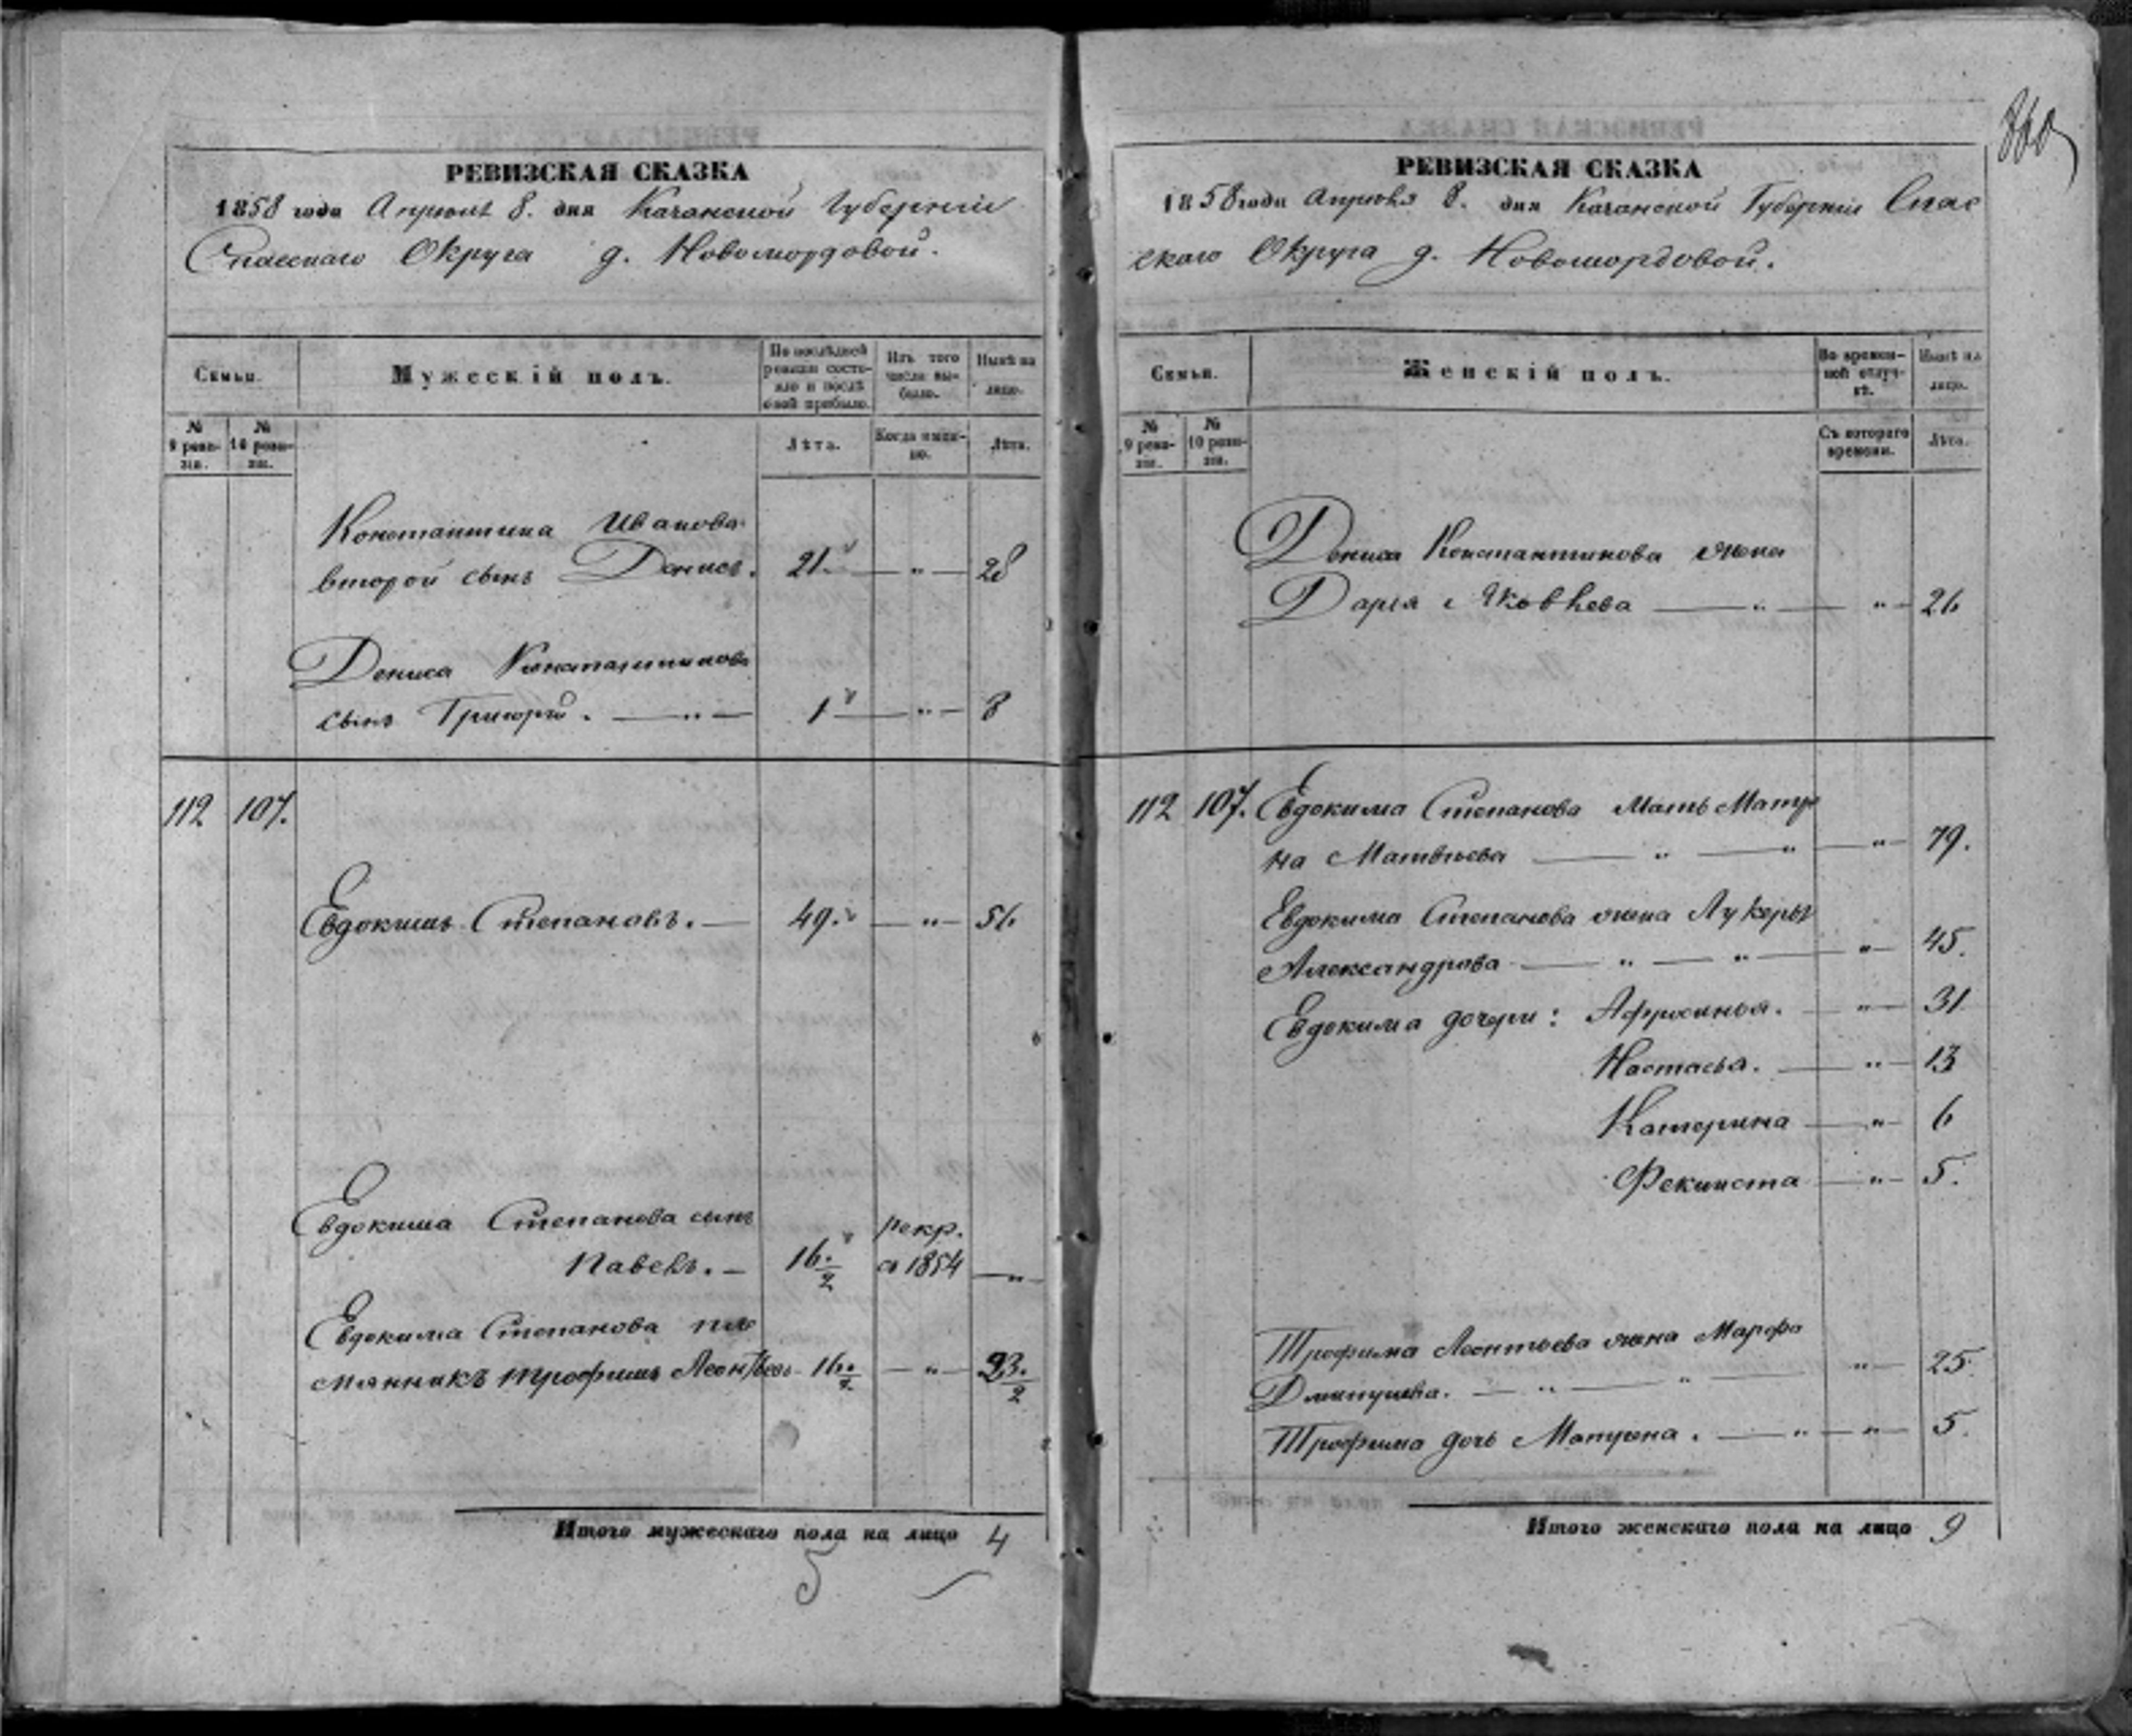 РЕВИЗСКАЯ СКАЗКА
1858 года Апреля 8. дня Казанской Губернiи
Спасскаго Округа д. Новомордовой.
Семьи.
Мужескiй полъ.
По послѣдней ревизiи состояло и послѣ оной прибыло.
Изъ того числа выбыло.
Нынѣ на лицо.
№ 9 ревизiи.
№ 10 ревизiи.
Лѣта.
Когда именно.
Лѣта.
Константина Иванова
второй сынъ Денисъ. 21. — „ — 28
Дениса Константинова
сынъ Григорiй. — „ — 1 — „ — 8
112 107.
Евдокимъ Степановъ. — 49. — „ — 56
Евдокима Степанова сынъ
Павелъ. — 16 1/2 рекр. въ 1854 — „ —
Евдокима Степанова пле
мянникъ Трофимъ Леонтьевъ 16 1/2 — „ — 23 1/2
Итого мужескаго пола на лицо 4
5
860
РЕВИЗСКАЯ СКАЗКА
1858 года Апреля 8. дня Казанской Губернiи Спас
скаго Округа д. Новомордовой.
Семьи.
Женскiй полъ.
Во временной отлучкѣ.
Нынѣ на лицо.
№ 9 ревизiи.
№ 10 ревизiи.
Съ котораго времени.
Лѣта.
Дениса Константинова жена
Дарья Яковлева — „ — „ — 26
112 107. Евдокима Степанова мать Матре
на Матвѣева — „ — „ — „ — 79.
Евдокима Степанова жена Лукерья
Александрова — „ — „ — „ — 45.
Евдокима дочери: Афросинья. — „ — 31
Настасья. — „ — 13
Катерина — „ — 6
Феклиста — „ — 5.
Трофима Леонтьева жена Марфа
Дмитриева. — „ — „ — „ — 25.
Трофима дочь Матрена. — „ — „ — 5.
Итого женскаго пола на лицо 9